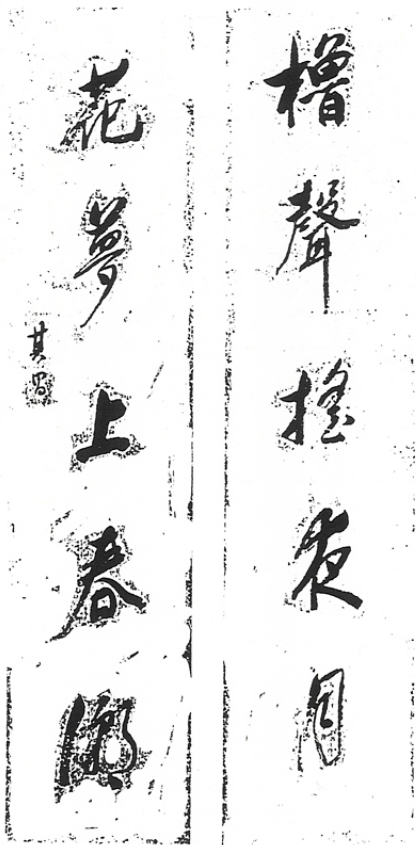 櫓聲搖夜月
花夢上春潮
其昌